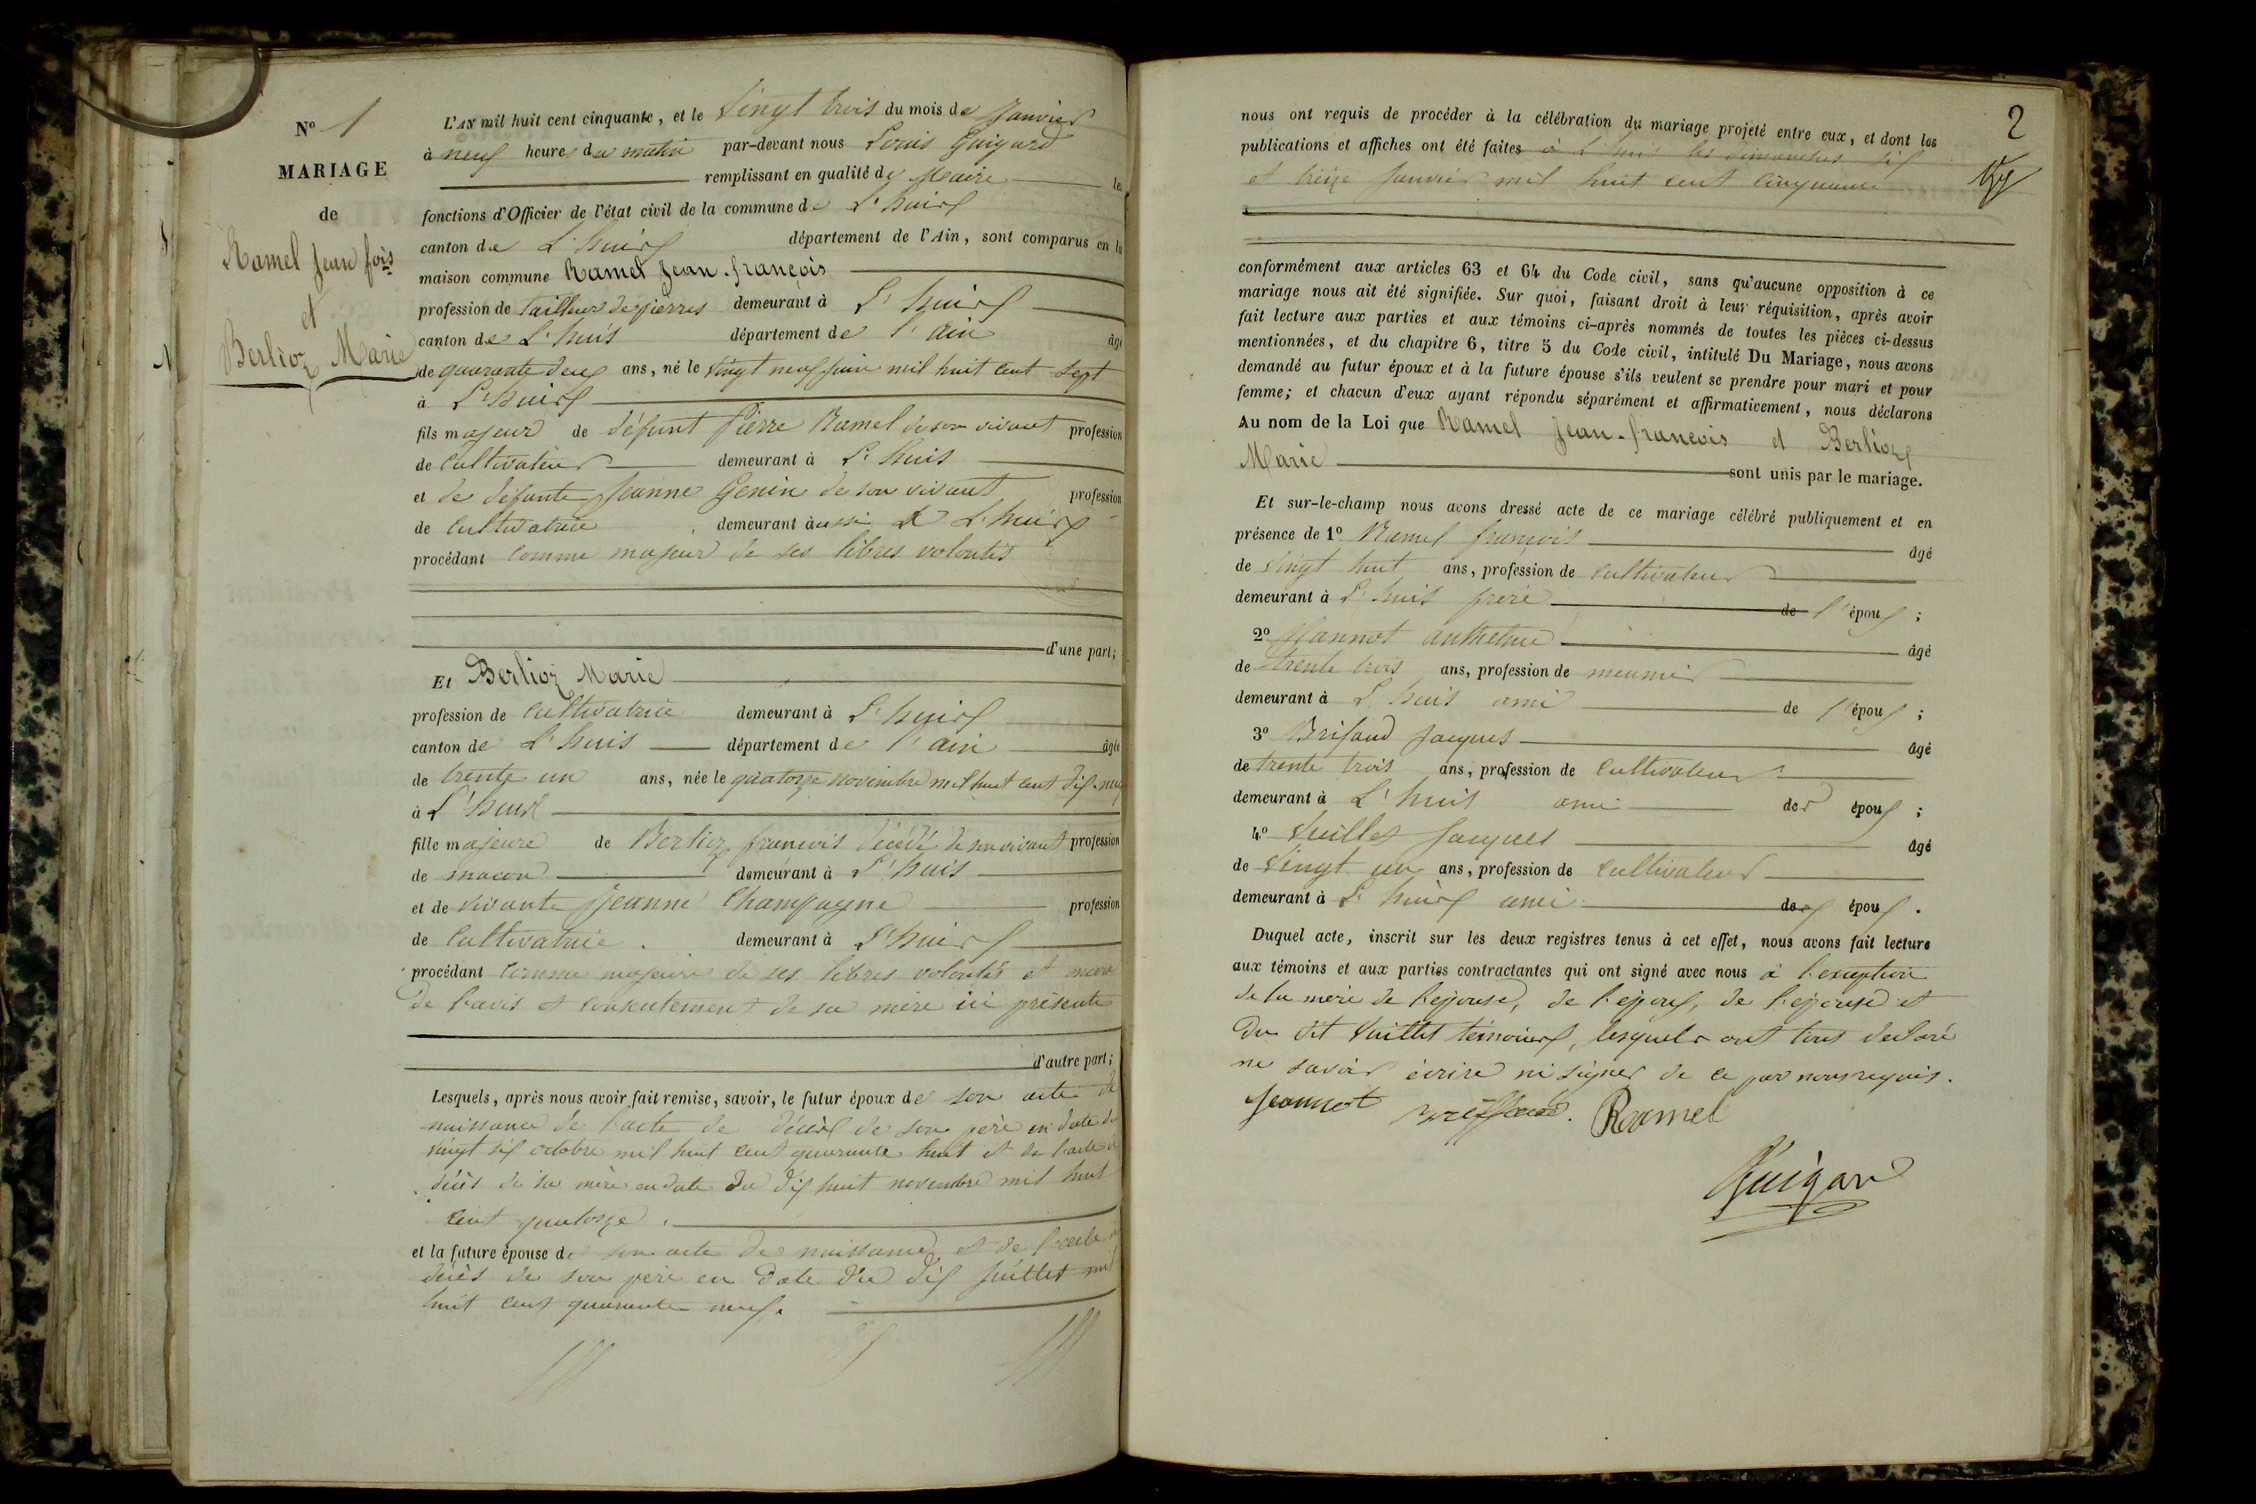 N° 1
MARIAGE
de
Ramel Jean fois
et
Berlioz Marie
L'AN mil huit cent cinquante, et le Vingt trois du mois de Janvier
à neuf heures du matin par-devant nous Louis Guigard
remplissant en qualité de Maire les
fonctions d'Officier de l'état civil de la commune de L'huis
canton de L'huis département de l'Ain, sont comparus en la
maison commune Ramel Jean-francois
profession de tailleur de pierres demeurant à L'huis
canton de L'huis département de l'ain âgé
de quarante deux ans, né le Vingt neuf juin mil huit cent sept
à L'huis
fils majeur de défunt Pierre Ramel de son vivant profession
de cultivateur demeurant à L'huis
et de défunte Jeanne Genin de son vivant profession
de cultivatrice demeurant aussi à L'huis
procédant comme majeur de ses libres volontés
d'une part;
Et Berlioz Marie
profession de cultivatrice demeurant à L'huis
canton de L'huis département de l'ain âgée
de trente un ans, née le quatorze novembre mil huit cent dix-neuf
à L'huis
fille majeure de Berlioz francois décédé de son vivant profession
de macon demeurant à L'huis
et de vivante Jeanne Champagne profession
de cultivatrice. demeurant à L'huis
procédant comme majeure de ses libres volontés et avec
de l'avis et consentement de sa mère ici présente
d'autre part;
Lesquels, après nous avoir fait remise, savoir, le futur époux de son acte de
naissance de l'acte de décès de son père en date du
vingt six octobre mil huit cent quarante huit et de l'acte de
décès de sa mère en date du dix huit novembre mil huit
cent quatorze.
et la future épouse de son acte de naissance et de l'acte de
décès de son père en date du dix Juillet mil
huit cent quarante neuf.
2
nous ont requis de procéder à la célébration du mariage projeté entre eux, et dont les
publications et affiches ont été faites à L'huis les dimanches six
et treize Janvier mil huit cent cinquante
conformément aux articles 63 et 64 du Code civil, sans qu'aucune opposition à ce
mariage nous ait été signifiée. Sur quoi, faisant droit à leur réquisition, après avoir
fait lecture aux parties et aux témoins ci-après nommés de toutes les pièces ci-dessus
mentionnées, et du chapitre 6, titre 5 du Code civil, intitulé Du Mariage, nous avons
demandé au futur époux et à la future épouse s'ils veulent se prendre pour mari et pour
femme; et chacun d'eux ayant répondu séparément et affirmativement, nous déclarons
Au nom de la Loi que Ramel Jean-francois et Berlioz
Marie sont unis par le mariage.
Et sur-le-champ nous avons dressé acte de ce mariage célébré publiquement et en
présence de 1° Ramel francois âgé
de vingt huit ans, profession de cultivateur
demeurant à L'huis frère de l'époux;
2° Jeannot anthelme âgé
de trente trois ans, profession de meunier
demeurant à L'huis ami de l'époux;
3° Brifaud Jacques âgé
de trente trois ans, profession de cultivateur
demeurant à L'huis ami des époux;
4° Vuillet Jacques âgé
de vingt un ans, profession de cultivateur
demeurant à L'huis ami des époux.
Duquel acte, inscrit sur les deux registres tenus à cet effet, nous avons fait lecture
aux témoins et aux parties contractantes qui ont signé avec nous à l'exception
de la mère de l'épouse, de l'époux, de l'épouse et
du dit Vuillet témoins, lesquels ont tous déclaré
ne savoir écrire ni signer de ce par nous requis.
Jeannot Ramel
Guigard